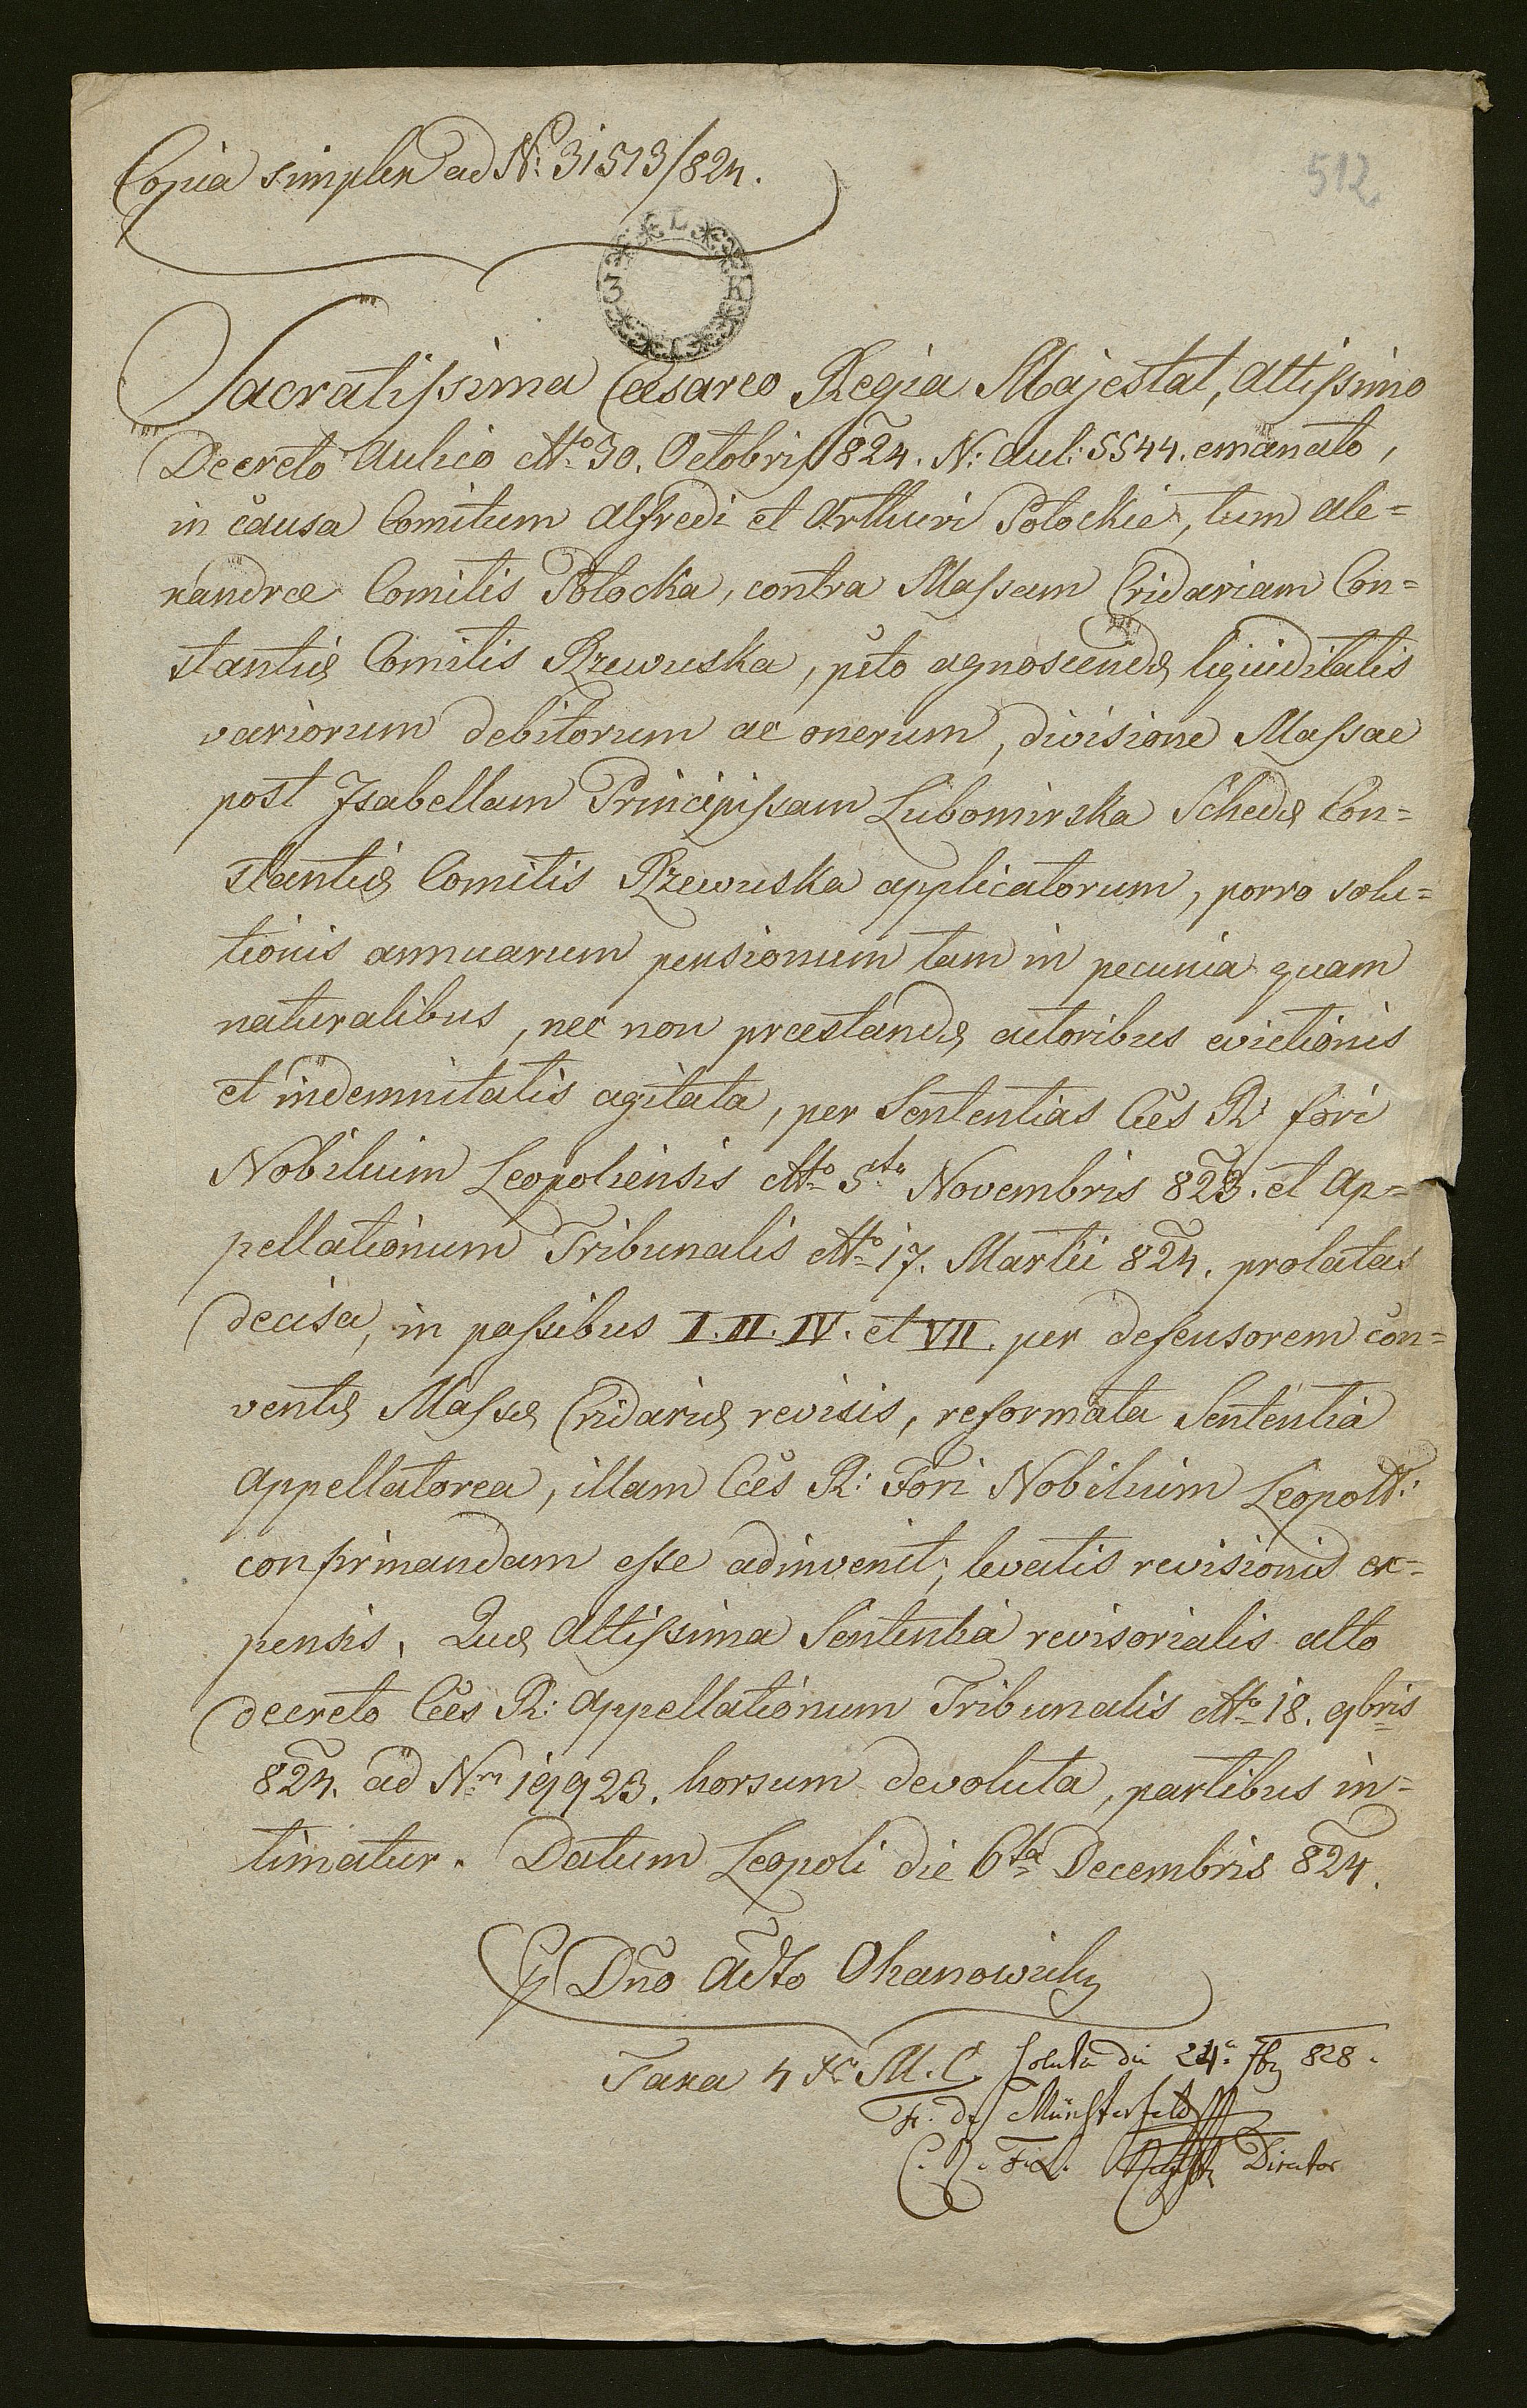 Copia simplex ad N: 31513/824.
512
L
3 K
Sacratissima Cæsareo Regia Majestat, altissimo
Decreto Aulico dtto 30. Octobris 824. N: Aul: 5544. emanato,
in causa Comitum Alfredi et Arthuri Potockie, tum Ale=
xandræ Comitis Potocka, contra Massam Cridariam Con=
stantiæ Comitis Rzewuska, pēto agnoscendæ liquiditatis
variorum debitorum ac onerum, divisione Massae
post Isabellam Principissam Lubomirska Schedæ Con=
stantiæ Comitis Rzewuska applicatorum, porro solu=
tionis annuarum pensionum tam in pecunia quam
naturalibus, nec non præstandæ actoribus evictionis
et indemnitatis agitata, per Sententias Cæs R: fori
Nobilium Leopoliensis dtto 5ta Novembris 823. et Ap=
pellationum Tribunalis dtto 17. Martii 824. prolatas
decisa, in passibus I. II. IV. et VII. per defensorem con=
ventæ Massæ Cridariæ revisis, reformata Sententia
appellatorea, illam Cæs R: Fori Nobilium Leopolt:
confirmandam esse adinvenit, levatis revisionis ex=
pensis. Quæ Altissima Sententia revisorialis alto
decreto Cæs R: Appellationum Tribunalis dtto 18. 9bris
824. ad Nrm 19923. horsum devoluta, partibus in=
timatur. Datum Leopoli die 6ta Decembris 824.
Dño Adto Okanowicz
Taxa 4 xr M. C. soluta die 24a 7br 828.
Fr. de Münsterfeld
Director